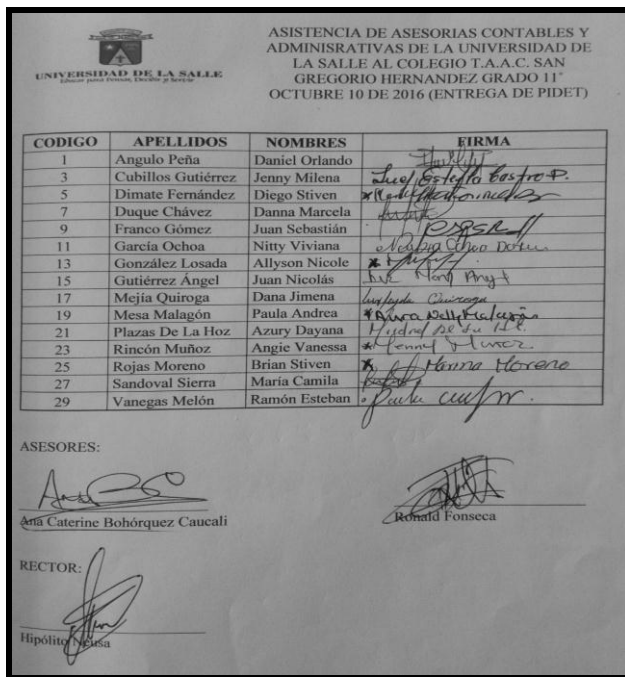 UNIVERSIDAD DE LA SALLE
Educar para Pensar, Decidir y Servir
ASISTENCIA DE ASESORIAS CONTABLES Y
ADMINISRATIVAS DE LA UNIVERSIDAD DE
LA SALLE AL COLEGIO T.A.A.C. SAN
GREGORIO HERNANDEZ GRADO 11°
OCTUBRE 10 DE 2016 (ENTREGA DE PIDET)
CODIGO APELLIDOS NOMBRES FIRMA
1 Angulo Peña Daniel Orlando
3 Cubillos Gutiérrez Jenny Milena Castro P.
5 Dimate Fernández Diego Stiven
7 Duque Chávez Danna Marcela
9 Franco Gómez Juan Sebastián
11 García Ochoa Nitty Viviana
13 González Losada Allyson Nicole
15 Gutiérrez Ángel Juan Nicolás
17 Mejía Quiroga Dana Jimena Quiroga
19 Mesa Malagón Paula Andrea Aura Nelly Malagón
21 Plazas De La Hoz Azury Dayana
23 Rincón Muñoz Angie Vanessa
25 Rojas Moreno Brian Stiven Marina Moreno
27 Sandoval Sierra María Camila
29 Vanegas Melón Ramón Esteban
ASESORES:
Ana Caterine Bohórquez Caucali Ronald Fonseca
RECTOR:
Hipólito Neusa